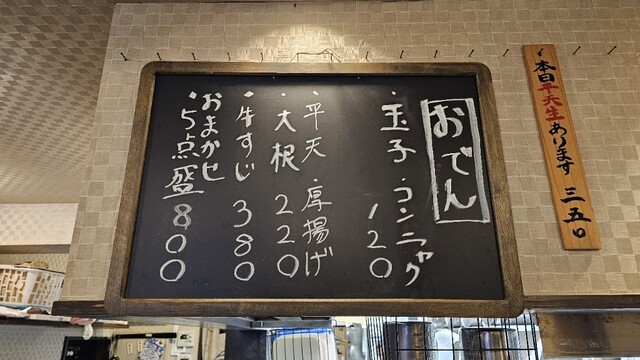 おでん
・玉子 ・コンニャク
120
・平天 ・厚揚げ
・大根 220
・牛すじ 380
おまかせ
・5点盛 800
本日平天生あります 三五〇